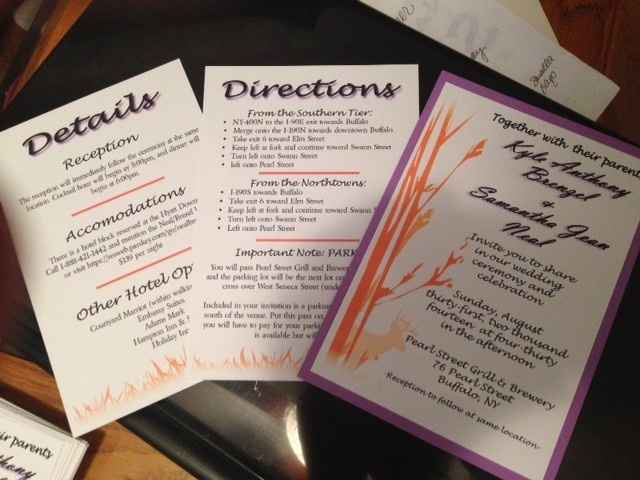 Details
Reception
The reception will immediately follow the ceremony at the same
location. Cocktail hour will begin at 5:00pm, and dinner will
begin at 6:00pm.
Accomodations
There is a hotel block reserved at the Hyatt
Call 1-888-421-1442 and mention the Neal/
or visit
$139 per night
Other Hotel Op
Courtyard Marriot (within
Embassy Suites
Adams Mark
Hampton Inn &
Holiday Inn
Directions
From the Southern Tier:
NY-400N to the I-90E exit towards Buffalo
Merge onto the I-190N towards downtown Buffalo
Take exit 6 toward Elm Street
Keep left at fork and continue toward Swann Street
Turn left onto Swann Street
left onto Pearl Street
From the Northtowns:
I-190S towards Buffalo
Take exit 6 toward Elm Street
Keep left at fork and continue toward Swann
Turn left onto Swann Street
Left onto Pearl Street
Important Note: PARK
You will pass Pearl Street Grill and Brewer
and the parking lot will be the next lot
cross over West Seneca Street
Included in your invitation is a parking
worth of the venue. Put this pass on
you will have to pay for your parking
is available but will
Together with their parents
Kyle Anthony
Brengel
&
Samantha Jean
Neal
Invite you to share
in our wedding
ceremony and
celebration
Sunday, August
thirty-first, two thousand
fourteen at four-thirty
in the afternoon
Pearl Street Grill & Brewery
76 Pearl Street
Buffalo, NY
Reception to follow at same location
eir parents